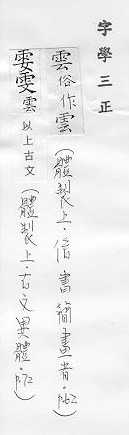 字學三正
雲俗作雲(體製上·俗書簡畫者·p.62)
雲以上古文(體製上·古文異體·p.72)